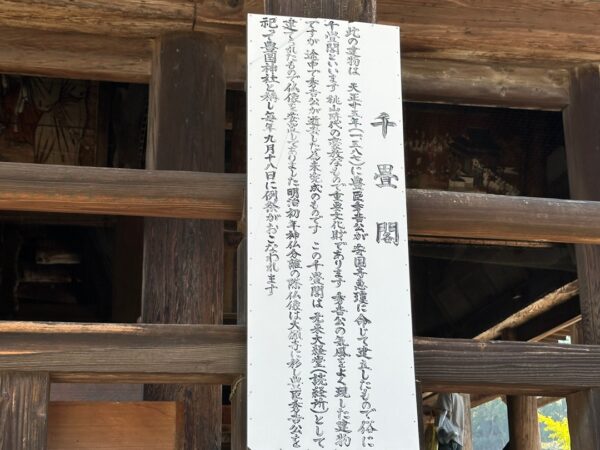 千畳閣
此の建物は 天正十五年(一五八七)に豊臣秀吉公が安国寺恵瓊に命じて建立したもので俗に
千畳閣といいます 桃山時代の豪放なもので重要文化財であります 秀吉公の気風をよく現した建物
ですが途中で秀吉公が逝去した為未完成のものです この千畳閣は 元来大経堂(読経所)として
建てられたもので仏像を安置しておりました 明治初年神仏分離の際仏像は大願寺に移し豊臣秀吉公を
祀って豊国神社と称し毎年九月十八日に例祭がおこなわれます